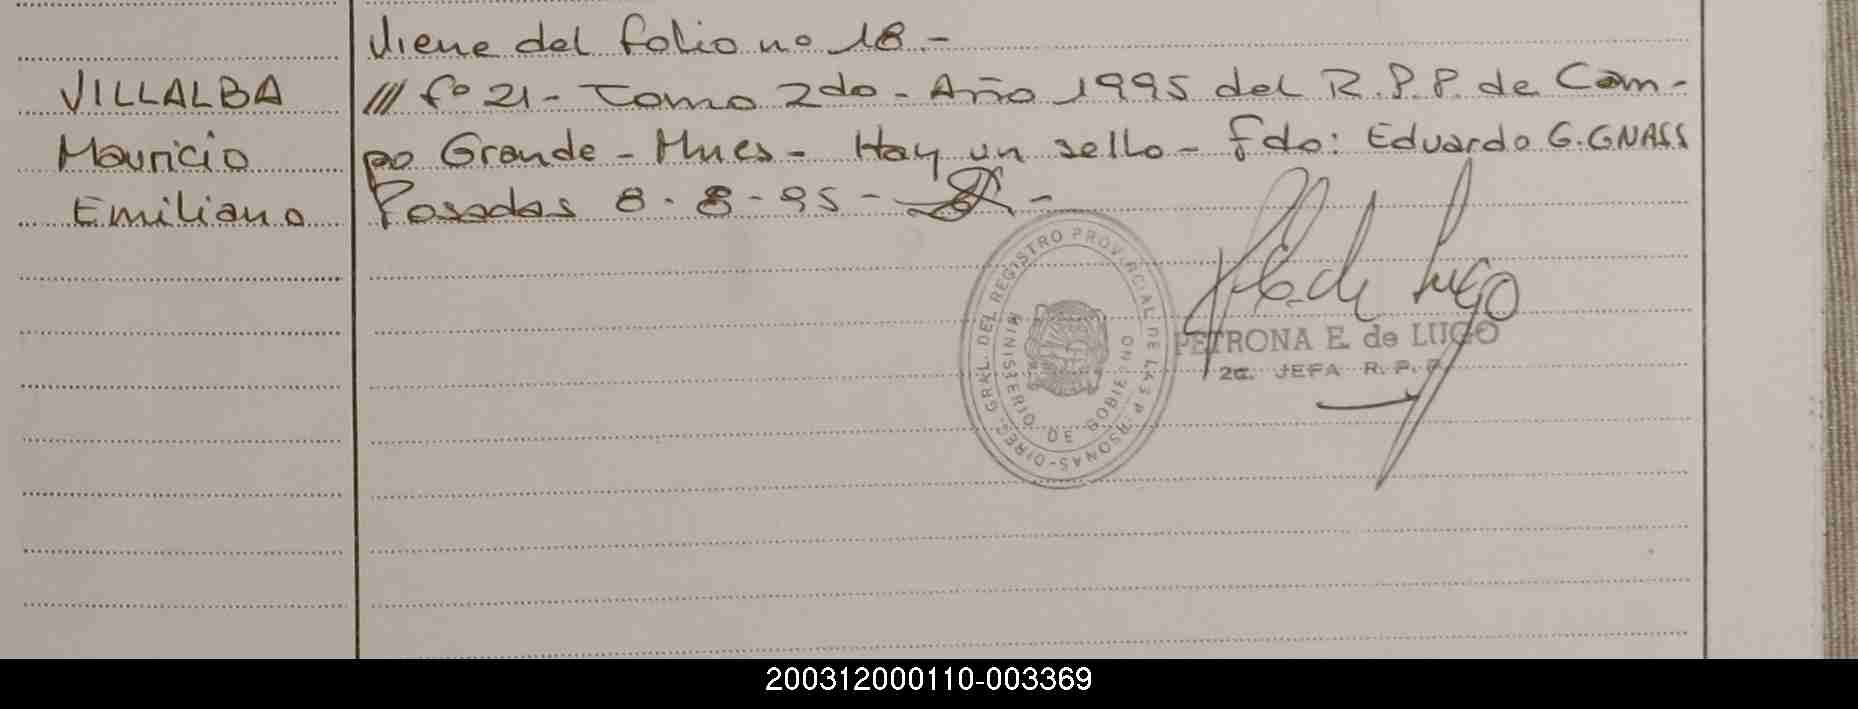 Viene del folio nº 18.-
VILLALBA
Mauricio
Emiliano
/// fº 21 - Tomo 2do - Año 1995 del R.P.P. de Cam-
po Grande - Mnes - Hay un sello - Fdo: Eduardo G. GNASS
Posadas 8-8-95 -
DIREC. GRAL. DEL REGISTRO PROVINCIAL DE LAS PERSONAS
MINISTERIO DE GOBIERNO
PETRONA E. de LUGO
2a. JEFA R. P. P.
200312000110-003369